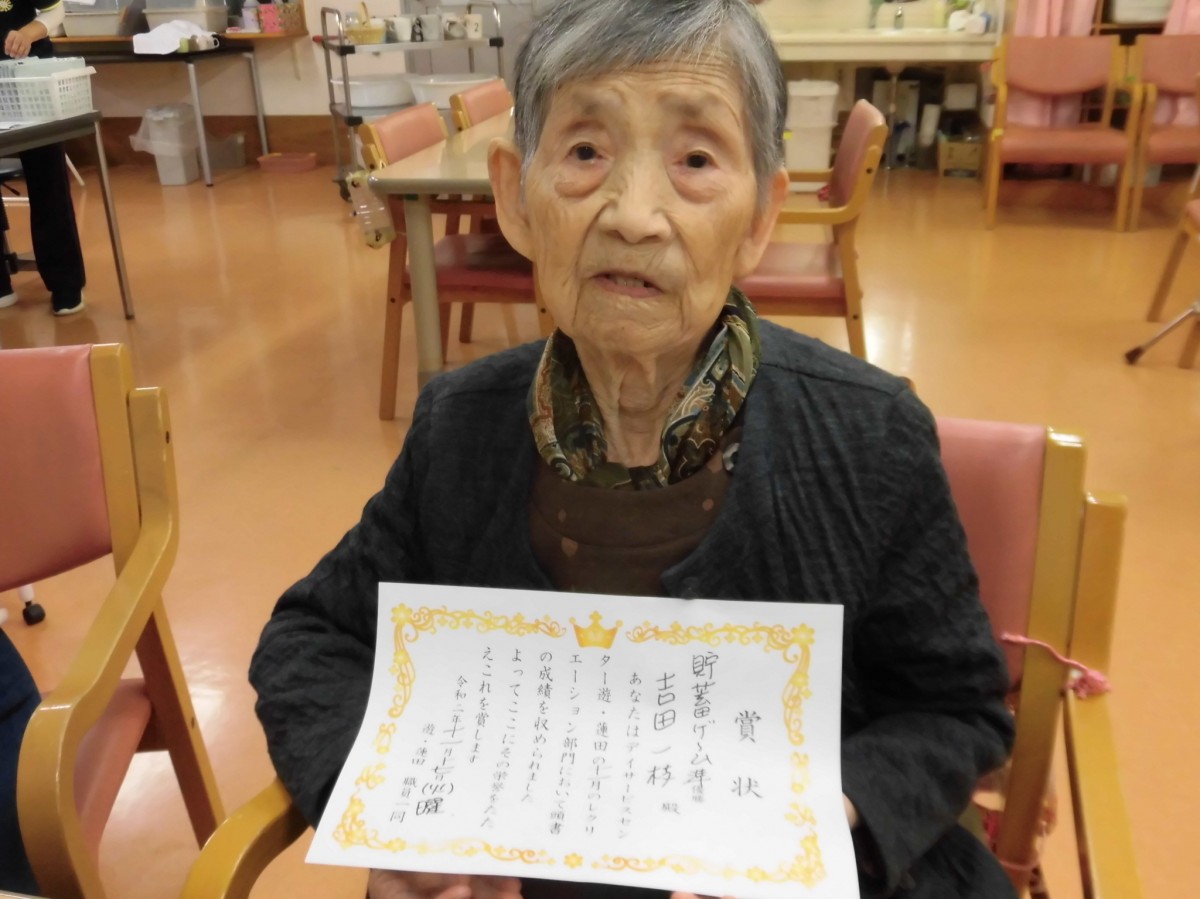 賞状
貯蓄げ～ム準優勝
吉田一枝 殿
あなたはデイサービスセン
ター遊・蓮田の十一月のレクリ
エーション部門において頭書
の成績を収められました
よってここにその栄誉をたた
えこれを賞します
令和二年十一月十七日(火)曜
遊・蓮田 職員一同